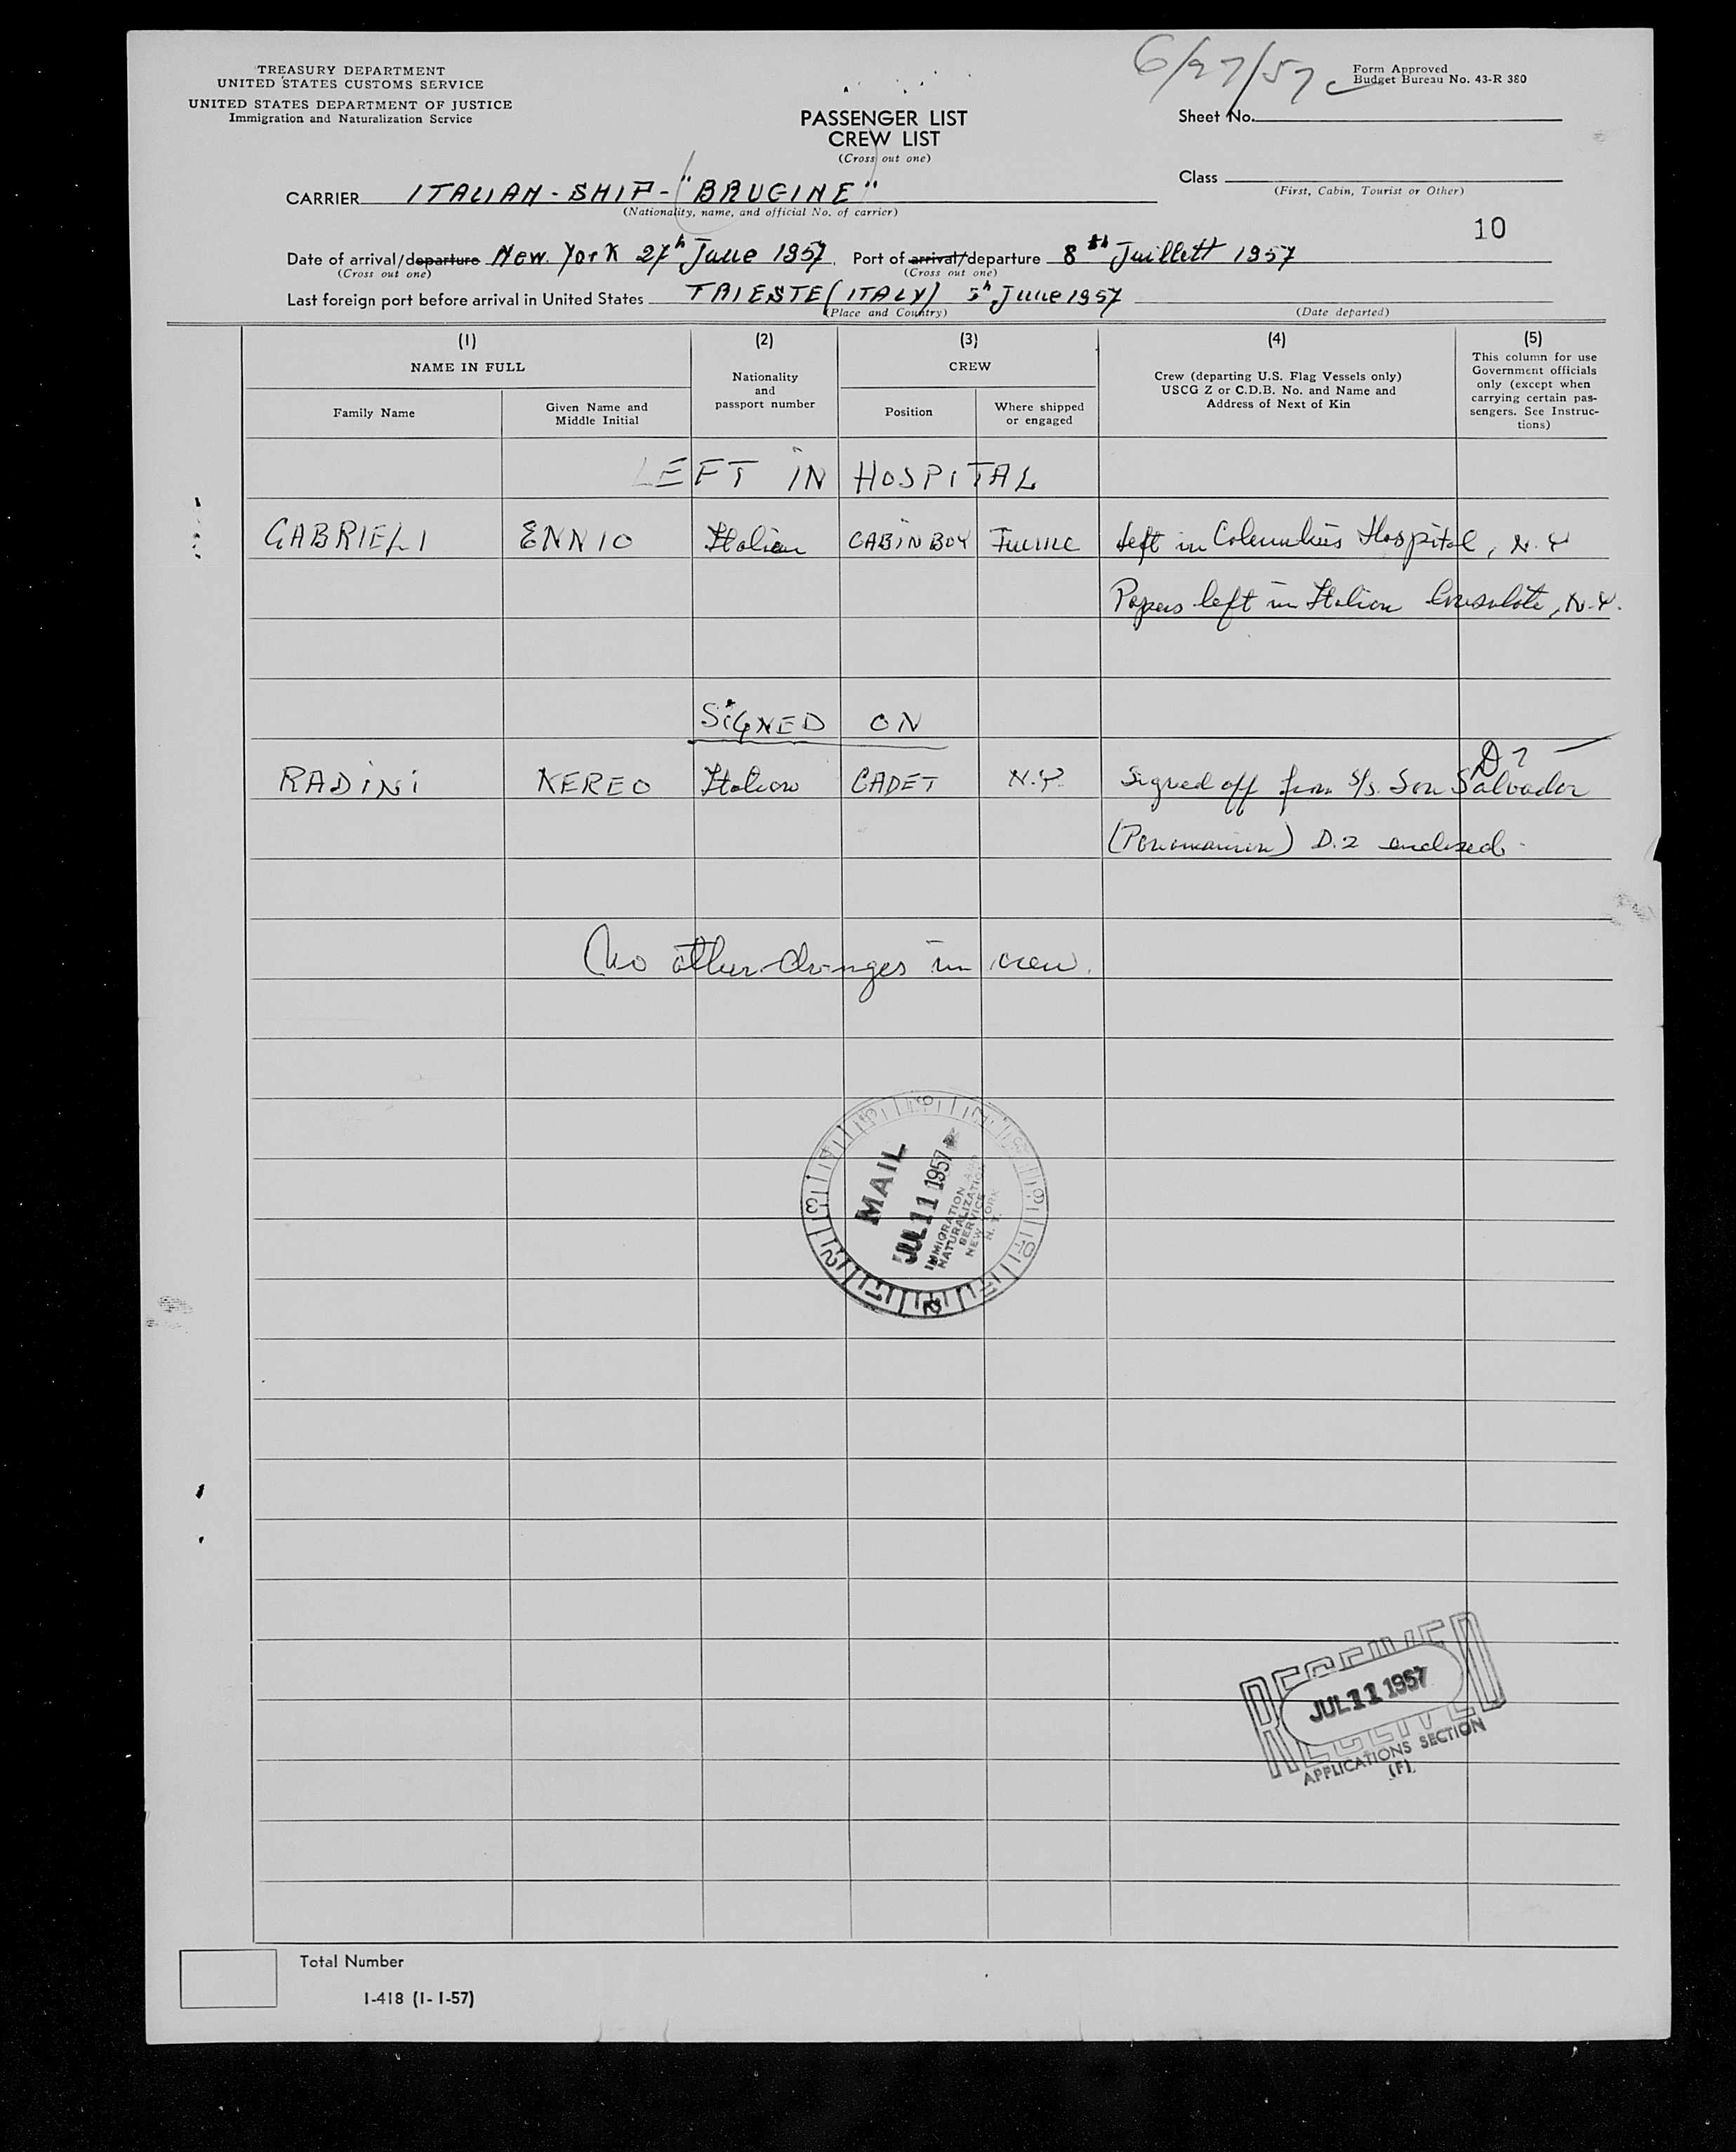 6/27/57
Form Approved
Budget Bureau No. 43-R 380
TREASURY DEPARTMENT
UNITED STATES CUSTOMS SERVICE
UNITED STATES DEPARTMENT OF JUSTICE
Immigration and Naturalization Service
PASSENGER LIST
CREW LIST
(Cross out one)
Sheet No.
Class
(First, Cabin, Tourist or Other)
CARRIER ITALIAN - SHIP - "BRUGINE"
(Nationality, name, and official No. of carrier)
10
Date of arrival/departure New York 27h June 1957. Port of arrival/departure 8th Juillett 1957
(Cross out one) (Cross out one)
Last foreign port before arrival in United States TRIESTE (ITALY) 5h June 1957
(Place and Country) (Date departed)
(1) (2) (3) (4) (5)
NAME IN FULL
Family Name
Given Name and
Middle Initial
Nationality
and
passport number
CREW
Position
Where shipped
or engaged
Crew (departing U.S. Flag Vessels only)
USCG Z or C.D.B. No. and Name and
Address of Next of Kin
This column for use
Government officials
only (except when
carrying certain pas-
sengers. See Instruc-
tions)
LEFT IN HOSPITAL
GABRIELI ENNIO Italian CABIN BOY Fiume Left in Columbus Hospital, N.Y
Papers left in Italian Consulate, N.Y.
SIGNED ON
RADINI NEREO Italian CADET N.Y. Signed off from S/s. San Salvador
(Panamanian) D.2 enclosed
No other changes in crew.
MAIL
JUL 11 1957
IMMIGRATION AND
NATURALIZATION
SERVICE
NEW YORK
N. Y.
RECEIVED
JUL 11 1957
RECEIVED
APPLICATIONS SECTION
(F).
Total Number
I-418 (1-1-57)